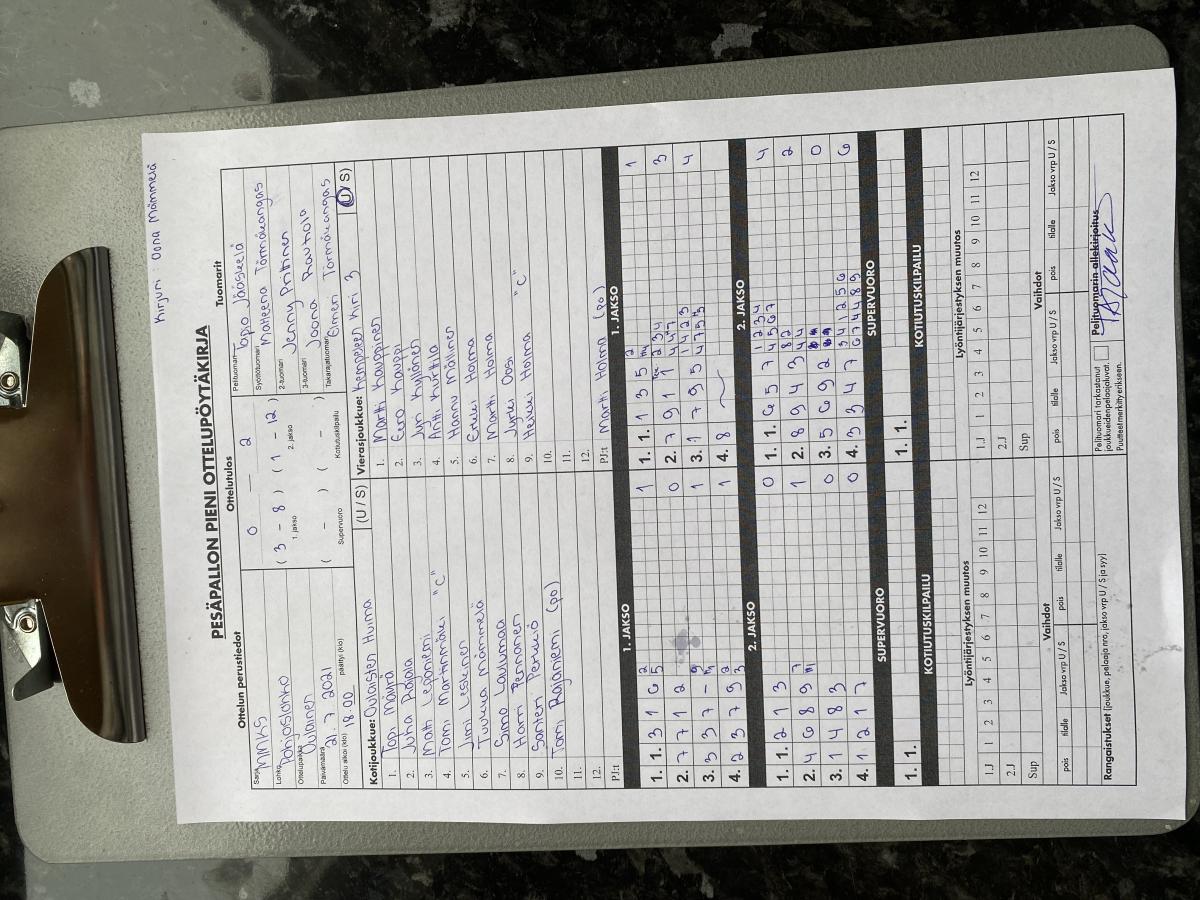 Kirjuri: Oona Mämmelä
PESÄPALLON PIENI OTTELUPÖYTÄKIRJA
Ottelun perustiedot
Ottelutulos
Tuomarit
Sarja MINKS
Lohko Pohjoislohko
Ottelupaikka Oulainen
Päivämäärä 21.7.2021
Ottelu alkoi (klo) 18.00 päättyi (klo)
0 - 2
( 3 - 8 ) ( 1 - 12 )
1. jakso 2. jakso
( - ) ( - )
Supervuoro Kotiutuskilpailu
Pelituomari Tapio Jääskelä
Syöttötuomari Marleena Törmäkangas
2-tuomari Jenny Pritinen
3-tuomari Joona Rautiola
Takarajatuomari Elmeri Törmäkangas
Kotijoukkue: Oulaisten Huima (U / S)
1. Topi Määrä
2. Juha Rajala
3. Matti Leponiemi
4. Tomi Martinmäki "C"
5. Jimi Leskinen
6. Tuukka Mämmelä
7. Simo Laulumaa
8. Harri Pennanen
9. Santeri Perkiö
10. Tomi Rajaniemi (po)
11.
12.
PJ:t
Vierasjoukkue: Kempeleen Kiri 3 (U / S)
1. Martti Kauppinen
2. Eero Kauppi
3. Jyri Kyllönen
4. Antti Kurttila
5. Hannu Mällinen
6. Erkki Holma
7. Martti Holma
8. Jyrki Oosi
9. Heikki Holma "C"
10.
11.
12.
PJ:t Martti Holma (po)
1. JAKSO
1. 1. 3 1 6 2 5 1
2. 7 7 1 2 0
3. 3 3 7 - 1
4. 2 3 7 9 2 3 1
1. JAKSO
1. 1. 1 3 5 1
2. 7 9 1 3
3. 1 7 9 5 4
4. 8
2. JAKSO
1. 1. 2 1 3 0
2. 4 6 8 9 7 1
3. 1 4 8 3 0
4. 1 2 1 7 0
2. JAKSO
1. 1. 6 5 7 4 5 6 7 1 2 3 4 4
2. 8 9 4 3 2
3. 5 6 9 2 0
4. 3 3 4 7 6 7 4 4 8 9 3 4 1 2 5 6 6
SUPERVUORO
1. 1.
SUPERVUORO
1. 1.
KOTIUTUSKILPAILU
KOTIUTUSKILPAILU
Lyöntijärjestyksen muutos
1.J 1 2 3 4 5 6 7 8 9 10 11 12
2.J
Sup
Lyöntijärjestyksen muutos
1.J 1 2 3 4 5 6 7 8 9 10 11 12
2.J
Sup
Vaihdot
pois tilalle Jakso vrp U / S pois tilalle Jakso vrp U / S
Vaihdot
pois tilalle Jakso vrp U / S pois tilalle Jakso vrp U / S
Rangaistukset (joukkue, pelaaja nro, jakso vrp U / S ja syy)
Pelituomari tarkastanut
joukkueiden pelaajaluvat.
Puutteet merkitty erikseen.
Pelituomarin allekirjoitus